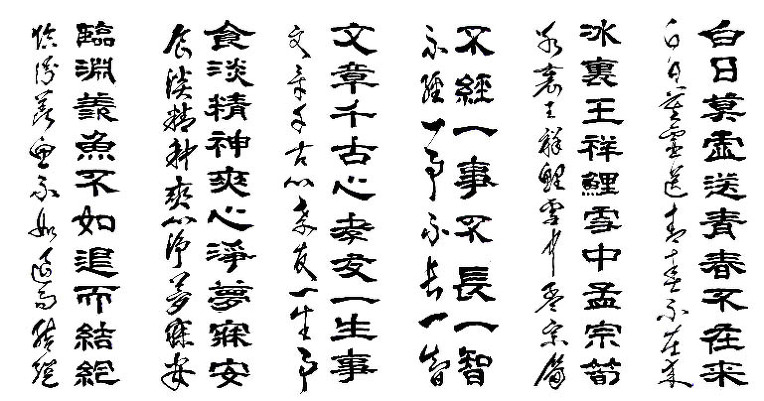 白日莫虛送青春不在来
白日莫虛送青春不在来
冰裏王祥鯉雪中孟宗筍
冰裏王祥鯉雪中孟宗筍
不經一事不長一智
不經一事不長一智
文章千古心孝友一生事
文章千古心孝友一生事
食淡精神爽心淨夢寐安
食淡精神爽心淨夢寐安
臨淵羨魚不如退而結網
臨淵羨魚不如退而結網